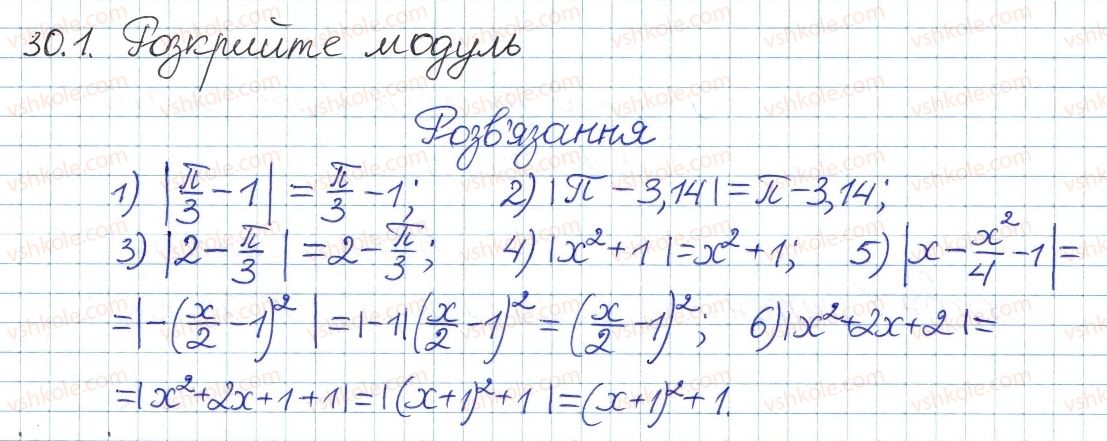 30.1. Розкрийте модуль
Розв'язання
1) |π/3 - 1| = π/3 - 1; 2) |π - 3,14| = π - 3,14;
3) |2 - π/3| = 2 - π/3; 4) |x² + 1| = x² + 1; 5) |x - x²/4 - 1| =
= |-(x/2 - 1)²| = |-1|(x/2 - 1)² = (x/2 - 1)²; 6) |x² + 2x + 2| =
= |x² + 2x + 1 + 1| = |(x+1)² + 1| = (x+1)² + 1.
vshkole.com